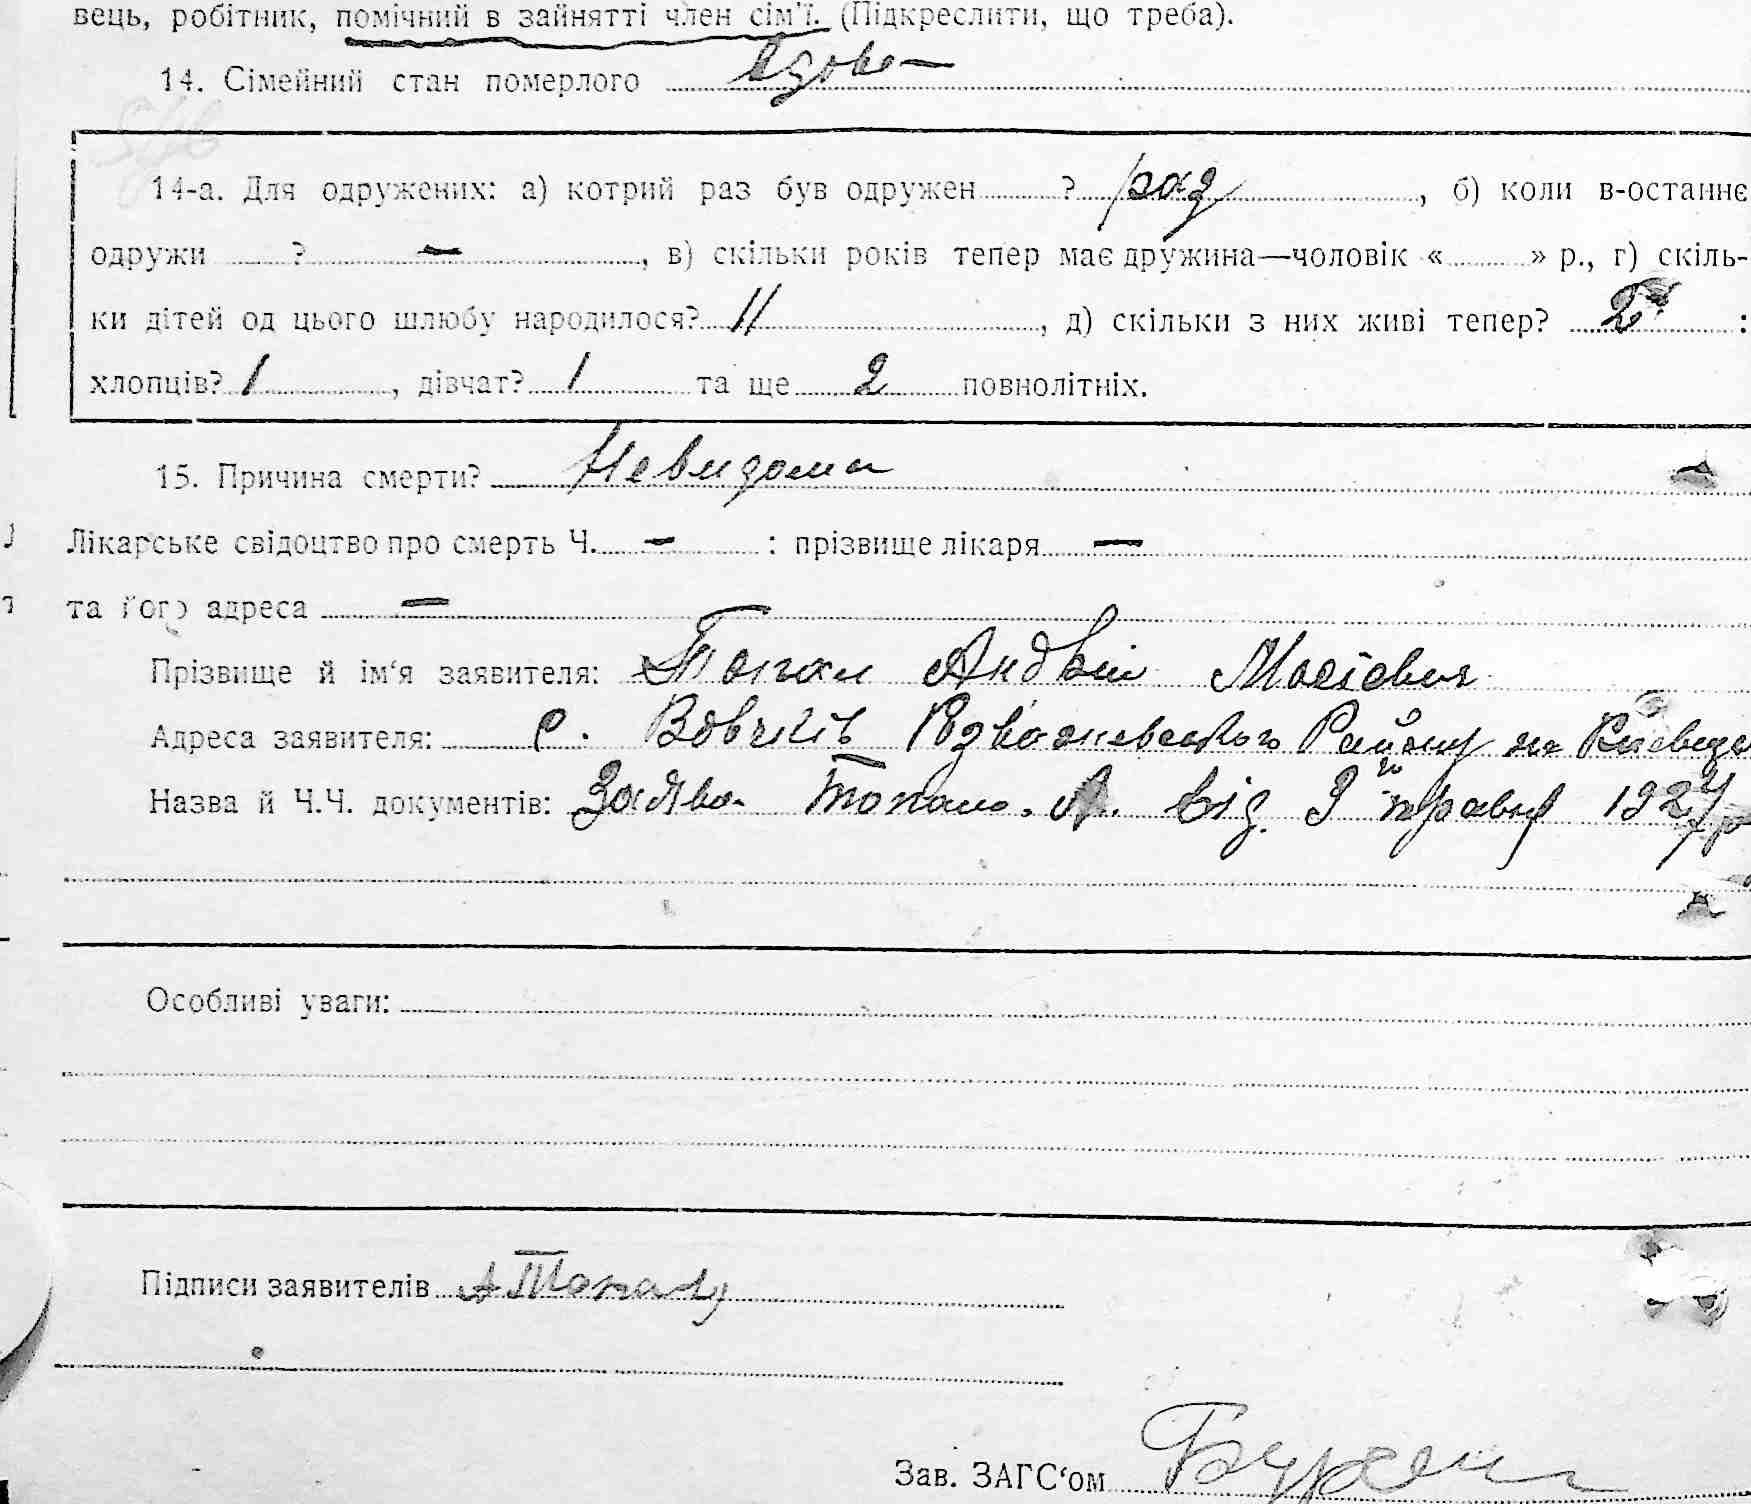 вець, робітник, помічний в зайнятті член сім'ї. (Підкреслити, що треба).
14. Сімейний стан померлого вдова
14-а. Для одружених: а) котрий раз був одружен ? 1 раз, б) коли в-останнє
одружи ? —, в) скільки років тепер має дружина—чоловік « » р., г) скіль-
ки дітей од цього шлюбу народилося? 11, д) скільки з них живі тепер? 2 :
хлопців? 1, дівчат? 1 та ще 2 повнолітніх.
15. Причина смерти? Невидома
Лікарське свідоцтво про смерть Ч. — : прізвище лікаря —
та його адреса —
Прізвище й ім‘я заявителя: Топал Андрій
Адреса заявителя: с. Вовчків Району на
Назва й Ч.Ч. документів: Заява Топало. А. від 9 травня 1927 р
Особливі уваги:
Підписи заявителів А Топал
Зав. ЗАГС‘ом